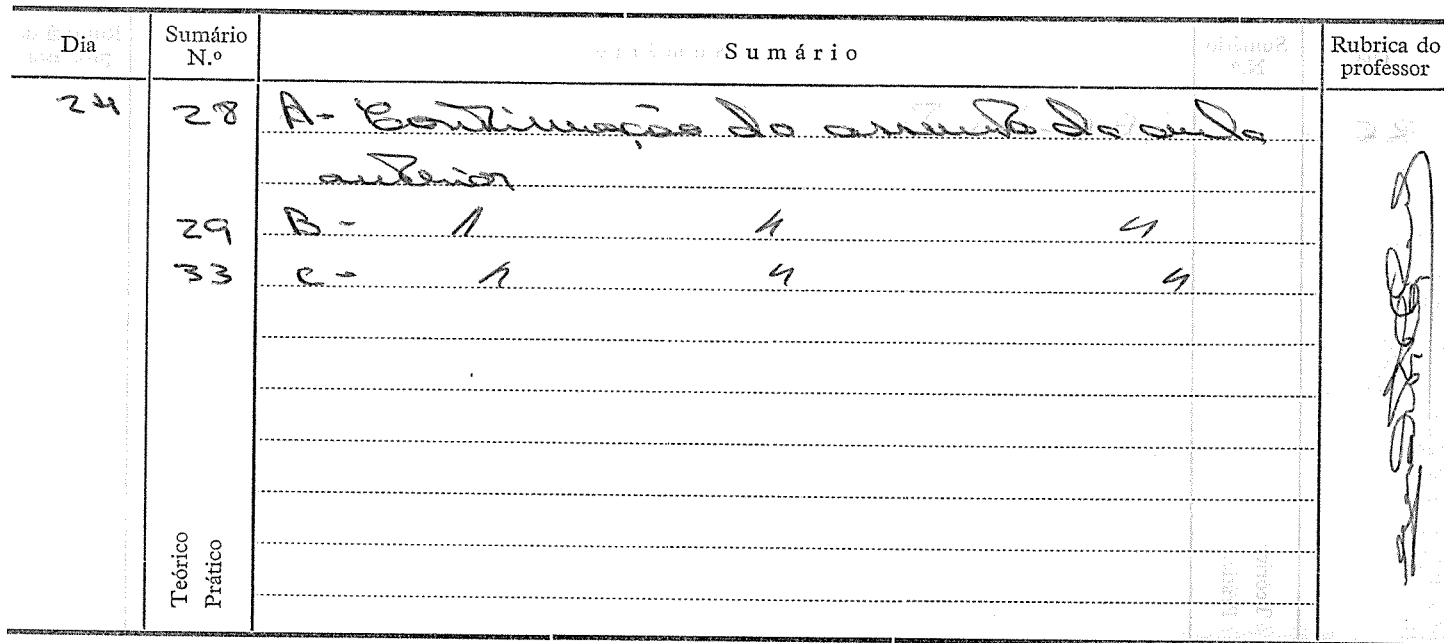 Dia Sumário N.º Sumário Rubrica do professor
24 28 A- Continuação do assunto da aula
anterior
29 B - " " "
33 C - " " "
Teórico
Prático